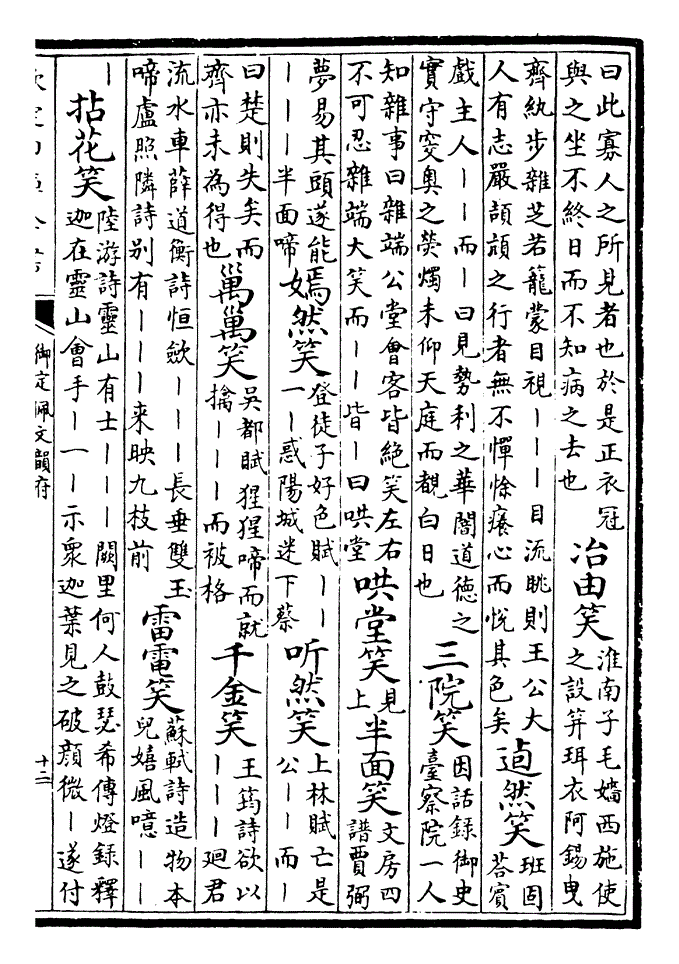 曰此寡人之所見者也於是正衣冠
與之坐不終日而不知病之去也
冶由笑
淮南子毛嬙西施使
之設笄珥衣阿錫曳
齊紈步雜芝若籠蒙目視｜｜｜目流眺則王公大
人有志嚴頡頏之行者無不憚悇癢心而悅其色矣
逌然笑
班固
荅賓
戲主人｜｜而｜曰見勢利之華闇道德之
實守窔奧之熒燭未仰天庭而覩白日也
三院笑
因話錄御史
臺察院一人
知雜事曰雜端公堂會客皆絕笑左右
不可忍雜端大笑而｜｜皆｜曰哄堂
哄堂笑
見
上
半面笑
文房四
譜賈弼
夢易其頭遂能
｜｜｜半面啼
嫣然笑
登徒子好色賦｜｜
一｜惑陽城迷下蔡
听然笑
上林賦亡是
公｜｜而｜
曰楚則失矣而
齊亦未為得也
笑
吳都賦猩猩啼而就
擒｜｜｜而被格
千金笑
王筠詩欲以
｜｜｜廻君
流水車薛道衡詩恒歛｜｜｜長垂雙玉
啼盧照隣詩别有｜｜｜来映九枝前
雷電笑
蘇軾詩造物本
兒嬉風噫｜｜
｜
拈花笑
陸游詩靈山有士｜｜｜闕里何人鼓瑟希傳燈錄釋
迦在靈山會手｜一｜示衆迦葉見之破顔微｜遂付
欽定四庫全書
御定佩文韻府
十二